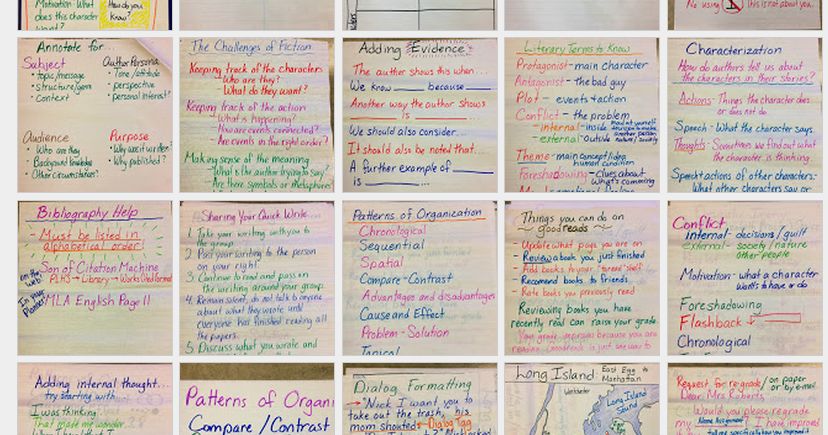 Motivation: What
does this character
want?
How do you
Know?
No using
This is not about you.
Annotate for...
Subject
• topic/message
• structure/genre
• Context
Author Persona
• Tone/attitude
• perspective
• personal interest?
Audience
• Who are they
• Background knowledge
• Other circumstances?
Purpose
• Why was it written?
• Why published?
The Challenges of Fiction
Keeping track of the characters
Who are they?
What do they want?
Keeping track of the action
What is happening?
How are events connected?
Are events in the right order?
Making sense of the meaning
What is the author trying to say?
Are there symbols or metaphors
Adding Evidence
The author shows this when...
We know ____ because ____
Another way the author shows
____ is ____
We should also consider...
It should also be noted that...
A further example of ____
is ____...
Literary Terms to Know
Protagonist - main character
Antagonist - the bad guy
Plot - events + action
Conflict - the problem
- internal - inside
- external - outside
another person
Theme - main concept/idea
human condition
Foreshadowing - Clues about
What's coming
Characterization
How do authors tell us about
the characters in their stories?
Actions - Things the character does
or does not do
Speech - What the character says.
Thoughts - Sometimes we find out what
the character is thinking.
Speech + actions of other characters -
What other characters say or
Bibliography Help
- Must be listed in
alphabetical order!
on the web
Son of Citation Machine
PLHS → Library → Works Cited format
In your Planner
MLA English Page 11
Sharing Your Quick Write...
1. Take your writing with you to
the group
2. Pass your writing to the person
on your right.
3. Continue to read and pass on
the writing around your group.
4. Remain silent, do not talk to anyone
about what they wrote until
everyone has finished reading all
the papers.
5. Discuss what you wrote and
Patterns of Organization
Chronological
Sequential
Spatial
Compare-Contrast
Advantages and disadvantages
Cause and Effect
Problem-Solution
Topical
Things you can do on
goodreads
- Update what page you are on
- Review a book you just finished
- Add books to your "to read" shelf
- Recomend books to friends
- Rate books you previously read
Reviewing books you have
recently read can raise your grade.
Your grade improves because you are
Conflict
internal - decisions/guilt
external - society/nature
other people
Motivation - what a character
wants to have or do
Foreshadowing
Flashback
Chronological
Adding internal thought...
try starting with
I was thinking
That made me wonder
Patterns of Organi
Compare/Contrast
Dialog Formatting
→ "Nick I want you to
take out the trash," his
mom shouted ← Dialog Tag
Long Island: East Egg to
Manhattan
Westchester
Long Island
Sound
Request for re-grade / on paper
or by e-mail
Dear Mrs Roberts,
Would you please regrade
my Name Assignment? I have improved